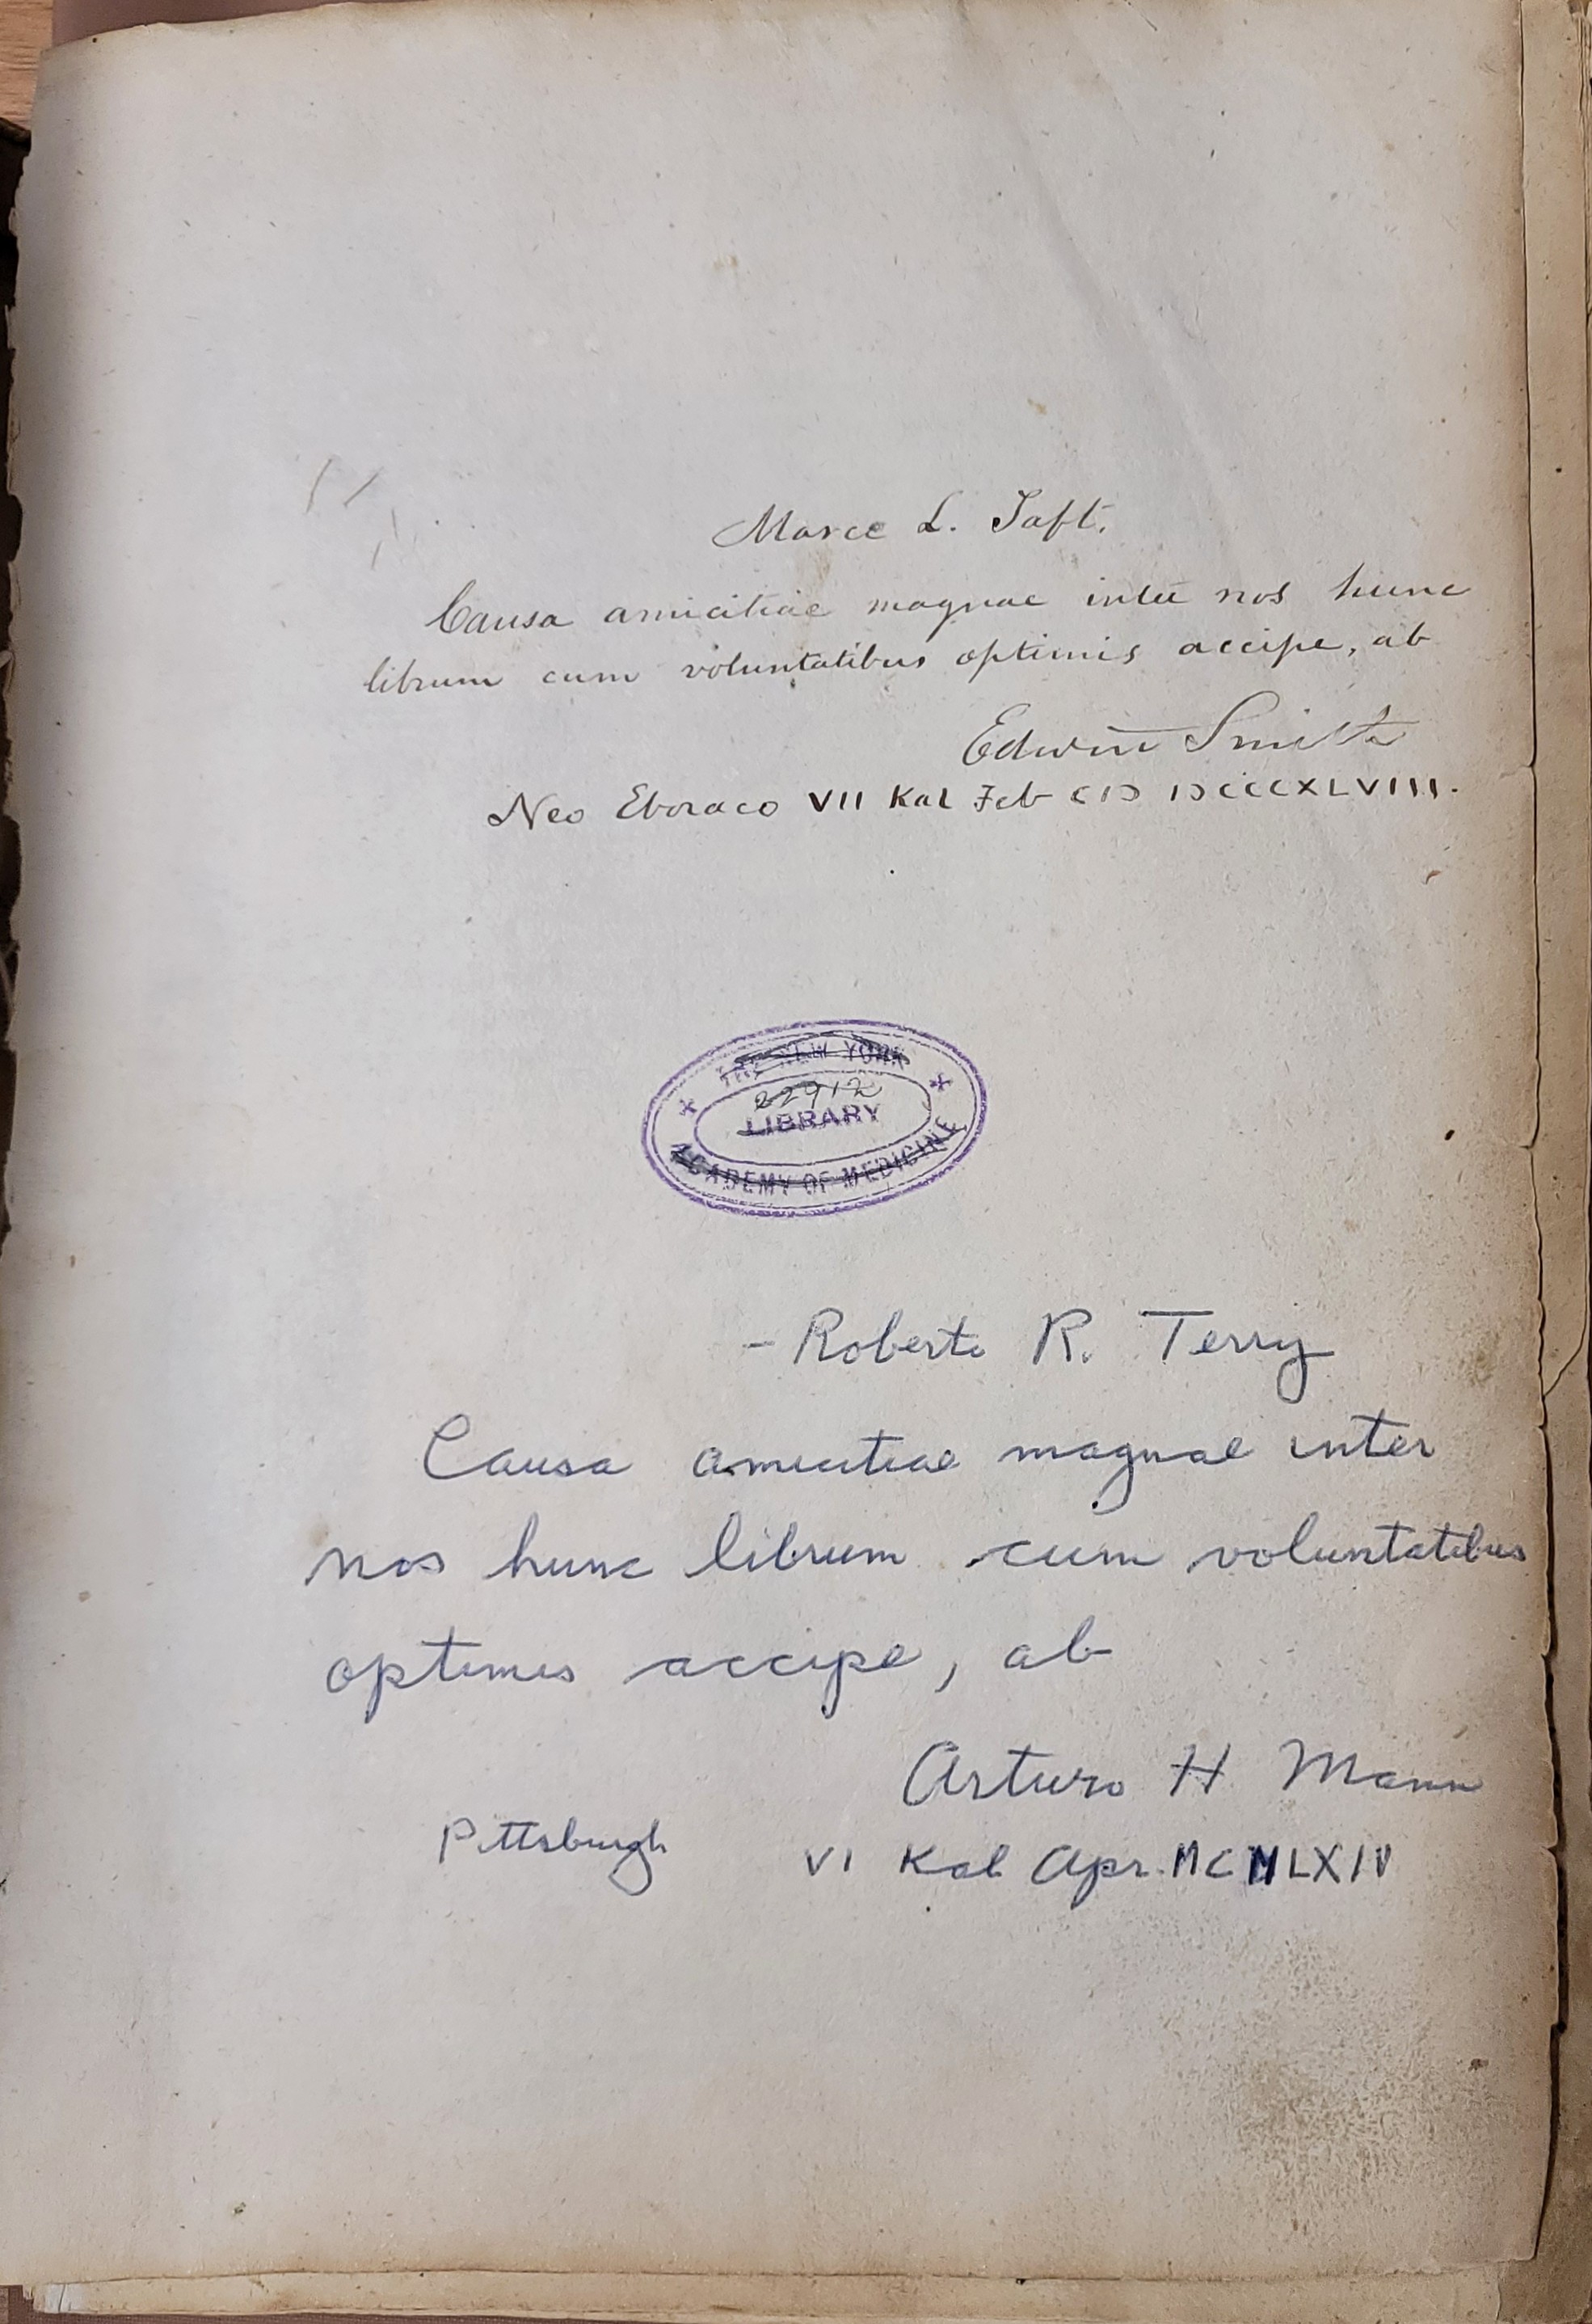 Marce L. Taft.
Causa amicitiae magnae inter nos hunc
librum cum voluntatibus optimis accipe, ab
Edwin Smith
Neo Eboraco VII Kal Feb CIↃ IↃCCCXLVIII.
THE NEW YORK
22912
LIBRARY
ACADEMY OF MEDICINE
- Roberto R. Terry
Causa amicitiae magnae inter
nos hunc librum cum voluntatibus
optimis accipe, ab
Arturo H Mann
Pittsburgh VI Kal Apr. MCMLXIV